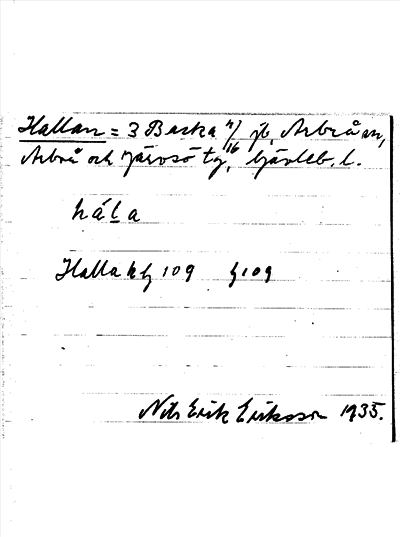 Hallan = 3 Backa 4/16 jb, Arbrå sn,
Arbrå och Järvsö tg, Gävleb. l.
háḷa
Halla kbg 109 fg 109
Nils Erik Eriksson 1935.